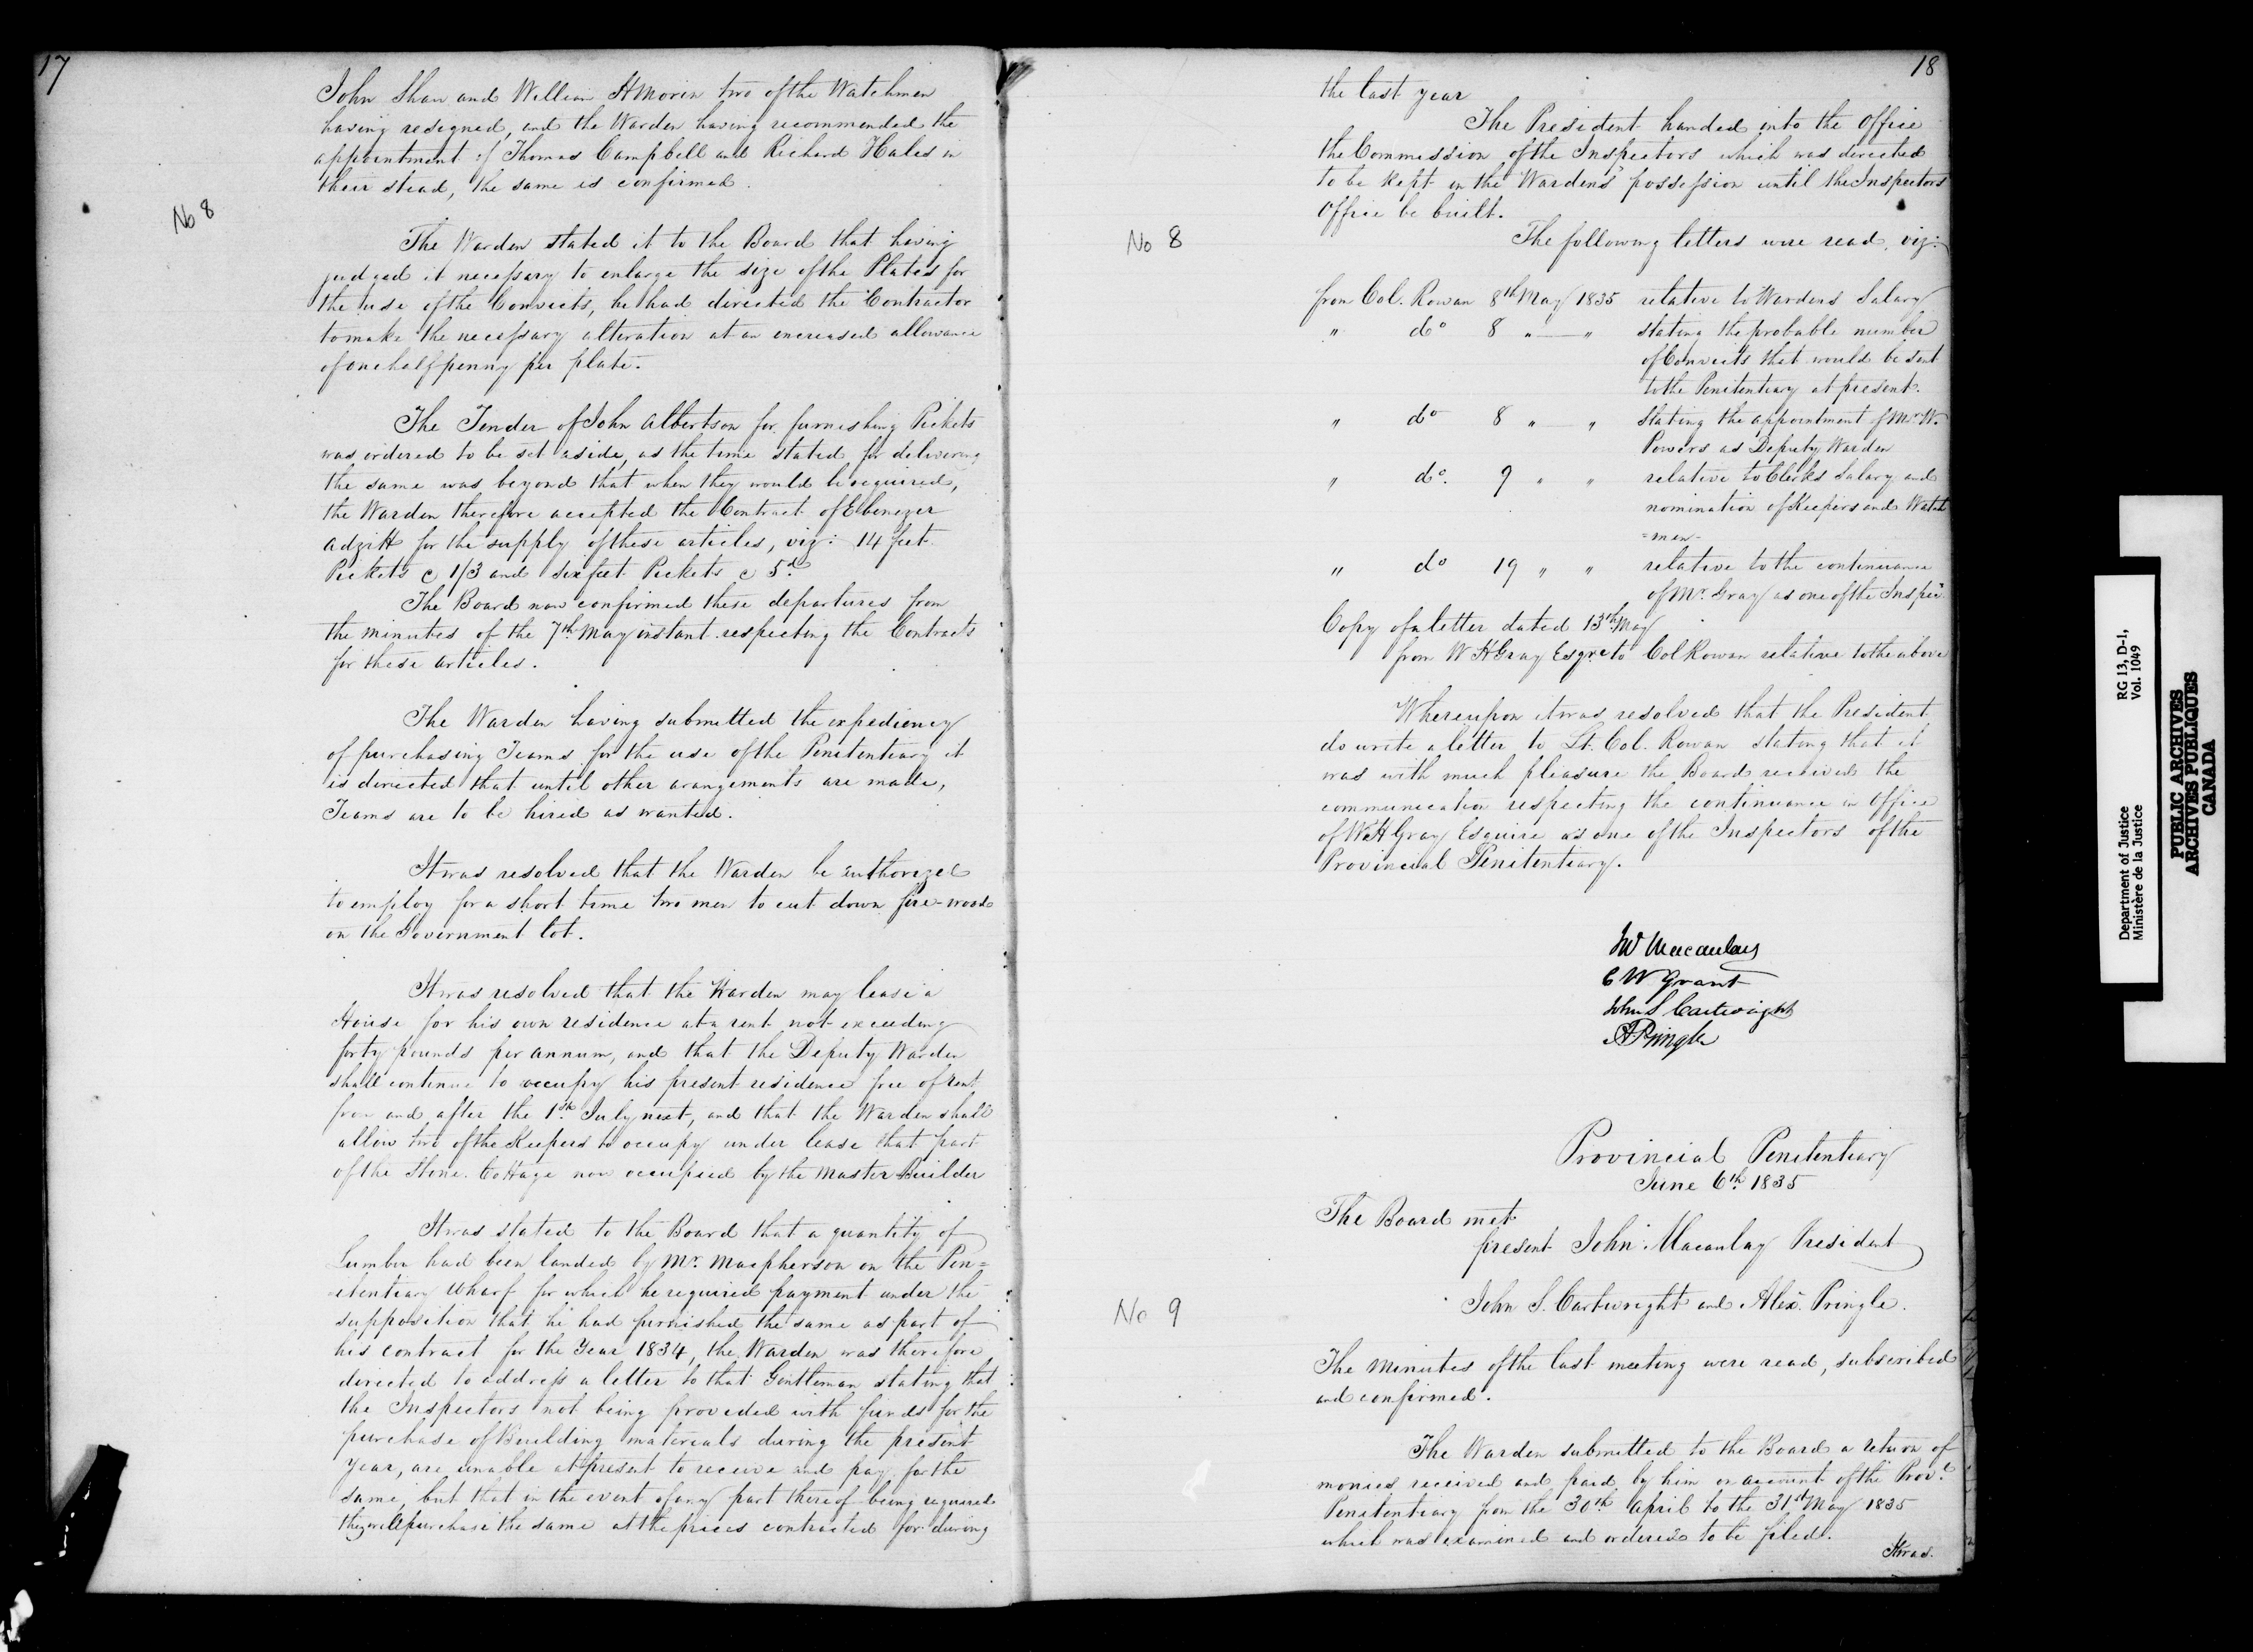 17
John Shaw and William H Morin two of the Watchmen
having resigned, and the Warden having recommended the
appointment of Thomas Campbell and Richard Hales in
their stead, the same is confirmed.
No 8
The Warden stated it to the Board that having
judged it necessary to enlarge the size of the Plates for
the use of the Convicts, he had directed the Contractor
to make the necessary alteration at an encreased allowance
of one half penny per plate.
The Tender of John Albertson for furnishing Pickets
was ordered to be set aside, as the time stated for delivering
the same was beyond that when they would be required,
the Warden therefore accepted the Contract of Ebenezer
for the supply of these articles, viz: 14 feet
Pickets @ 1/3 and six feet Pickets @ 5d
The Board now confirmed these departures from
the minutes of the 7th May instant respecting the Contracts
for these articles.
The Warden having submitted the expediency
of purchasing Teams for the use of the Penitentiary it
is directed that until other arangements are made,
Teams are to be hired as wanted.
It was resolved that the Warden be authorized
to employ for a short time two men to cut down fire-wood
on the Government lot.
It was resolved that the Warden may lease a
House for his own residence at a rent not exceeding
forty pounds per annum, and that the Deputy Warden
shall continue to occupy his present residence free of rent
from and after the 1st July next, and that the Warden shall
allow two of the Keepers to occupy under lease that part
of the Stone Cottage now occupied by the Master Builder
It was stated to the Board that a quantity of
Lumber had been landed by Mr. Macpherson on the Pen=
=itentiary Wharf for which he required payment under the
supposition that he had furnished the same as part of
his contract for the Year 1834, the Warden was therefore
directed to address a letter to that Gentleman stating that
the Inspectors not being provided with funds for the
purchase of Building materials during the present
year, are unable at present to receive and pay for the
same, but that in the event of any part thereof being required
they will purchase the same at the prices contracted for during
18
the last year
The President handed into the Office
the Commission of the Inspectors which was directed
to be kept in the Wardens possession until the Inspectors
Office be built.
No 8
The following letters were read, viz:
from Col. Rowan 8th May 1835 relative to Wardens Salary
" do 8 " — " stating the probable number
of Convicts that would be sent
to the Penitentiary at present.
" do 8 " — " stating the appointment of Mr. W.
Powers as Deputy Warden
" do. 9 " " relative to Clerks Salary and
nomination of Keepers and Watch
=men-
" do 19 " " relative to the continuance
of Mr. Gray as one of the Insprs
Copy of a letter dated 13th May
from W H Gray Esqre to Col Rowan relative to the above
Whereupon it was resolved that the President
do write a letter to Lt. Col. Rowan stating that it
was with much pleasure the Board received the
communication respecting the continuance in Office
of W H Gray Esquire as one of the Inspectors of the
Provincial Penitentiary.
Jno Macaulay
C W Grant
John S Cartwright
A Pringle
Provincial Penitentiary
June 6th 1835
The Board met
present John Macaulay President
John S. Cartwright and Alexr. Pringle.
No 9
The Minutes of the last meeting were read, subscribed
and confirmed.
The Warden submitted to the Board a return of
monies received and paid by him on account of the Provl.
Penitentiary from the 30th April to the 31st May 1835
which was examined and ordered to be filed.
It was
Department of Justice RG 13, D-1,
Ministère de la Justice Vol. 1049
PUBLIC ARCHIVES
ARCHIVES PUBLIQUES
CANADA